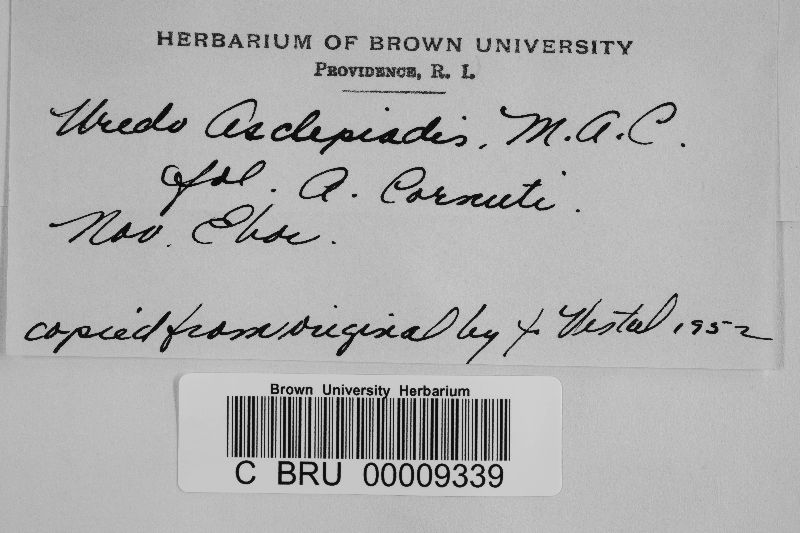 HERBARIUM OF BROWN UNIVERSITY
PROVIDENCE, R. I.
Uredo Asclepiadis, M.A.C.
fol. A. Cornuti.
Nov. Eboc.
copied from original by J. Vestal 1952
Brown University Herbarium
C BRU 00009339